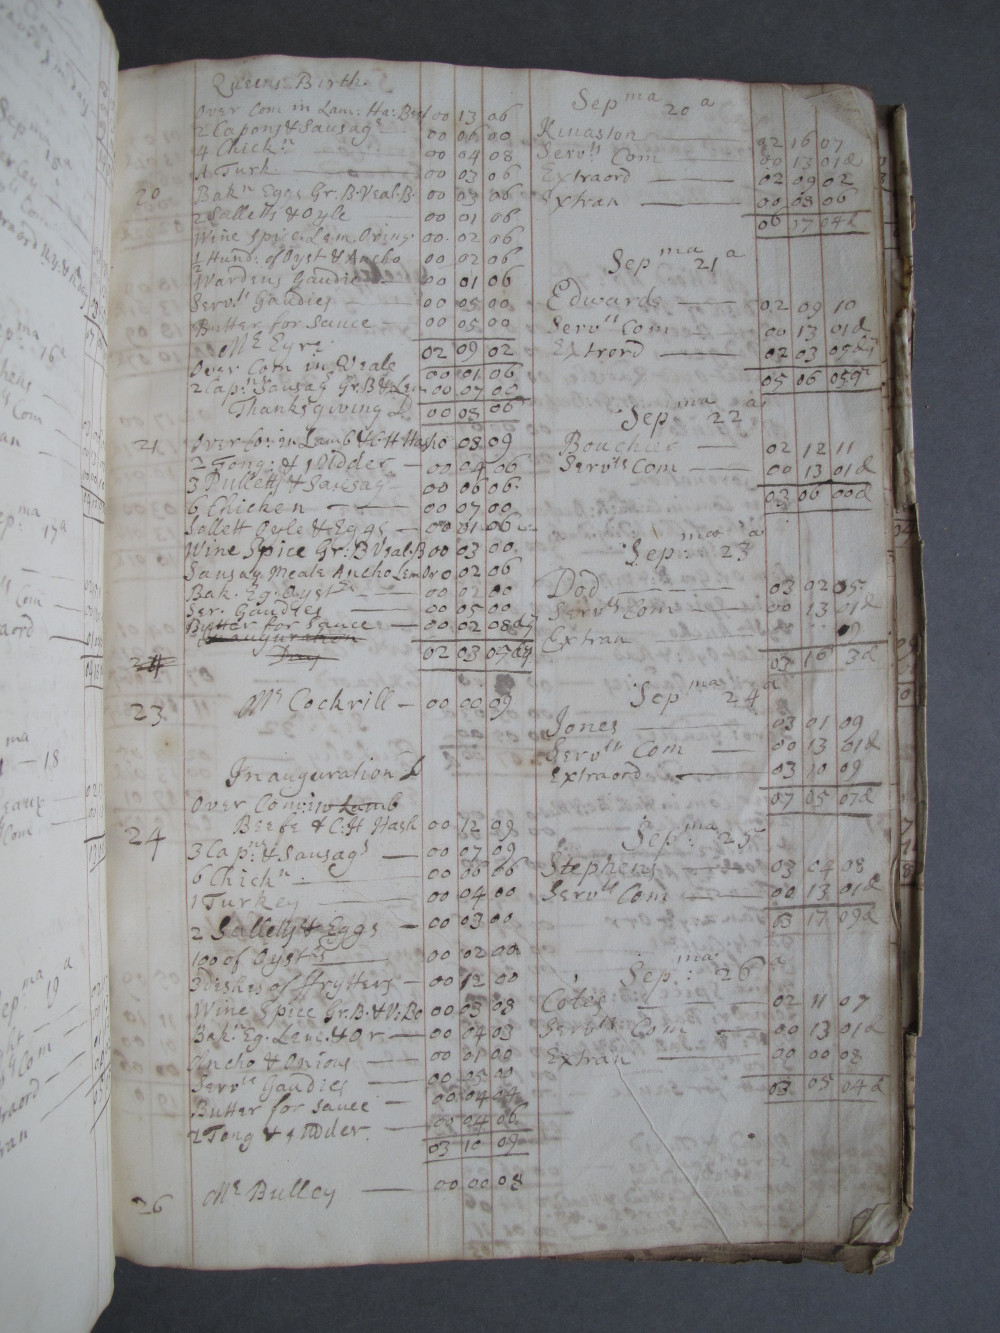 Queens Birth.
Over Com in Lam: Ha: Beef 00 13 06
2 Capons & Sausag 00 06 00
4 Chickn 00 04 08
A Turk 00 03 06
20 Bakn Eggs Gr. B. Veal. B. 00 03 06
2 Salletts & Oyle 00 01 06
Wine Spice. Lem Oring. 00 02 06
1/2 Hund: of Oyst & Ancho 00 02 06
Wardens Gaudies 00 01 06
Servts Gaudies 00 05 00
Butter for Sauce 00 05 00
02 09 02
Mr Eyre
Over Com in Veale 00 01 06
2 Capns Sausags Gr. B & Lem 00 07 00
00 08 06
Thanksgiving D
21 Over Com: in Lamb & C: H Hash 0 08 09
2 Tong: & 1 Udder 00 04 06
3 Pulletts & Sausag 00 06 06
6 Chicken 00 07 00
Sallett Oyle & Eggs 00 01 06
Wine Spice Gr: B Veal. B 00 03 00
Sausag Meale Ancho Lem Or 0 02 06
Bak. Eg. Oysts 00 02 00
Ser. Gaudies 00 05 00
Butter for Sauce 00 02 08 dq
Inauguration
02 03 05 dq
24 Day
23 Mr Cockrill 00 00 09
Inauguration D
Over Com: in Lamb
24 Beefe & C: H Hash 00 12 09
3 Capns & Sausags 00 07 09
6 Chickn 00 06 06
1 Turkey 00 04 00
2 Salletts & Eggs 00 03 00
100 of Oysts 00 02 00
3 Dishes of Frytters 00 12 00
Wine Spice Gr. B. & V: Bo 00 03 08
Bakn Eg. Lem. & Or 00 04 03
Ancho & Onions 00 01 00
Servts Gaudies 00 05 00
Butter for Sauce 00 04 04
2 Tong & 1 Udder. 00 04 06
03 10 09
26 Mr Bulley 00 00 08
Sepma 20a
Kinaston 02 16 07
Servts Com 00 13 01d
Extraord 02 09 02
Extran 00 08 06
06 07 04d
Sepma 21a
Edwards 02 09 10
Servts Com 00 13 01d
Extrord 02 03 05dq
05 06 05q
Sepma 22a
Bouchier 02 12 11
Servts Com 00 13 01d
03 06 00d
Sep: ma 23a
Dod 03 02 05
Servts Com 00 13 01d
Extran 9
03 16 3d
Sepma 24a
Jones 03 01 09
Servts Com 00 13 01d
Extraord 03 10 09
07 05 07d
Sep: ma 25
Stephens 03 04 08
Servts Com 00 13 01d
03 17 09d
Sep: ma 26a
Coles 02 11 07
Servts Com 00 13 01d
Extran 00 00 08
03 05 04d